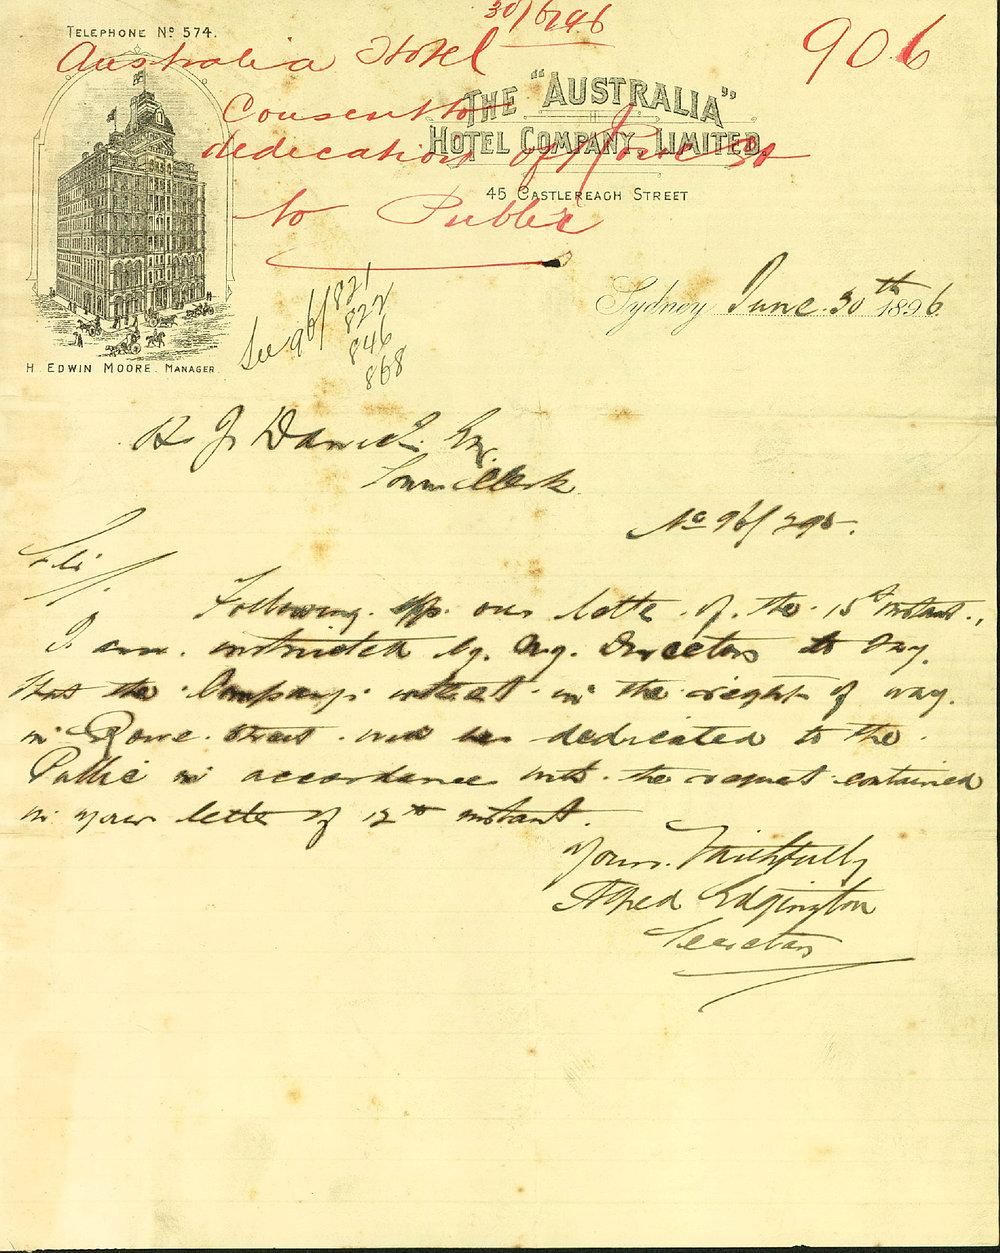 30/6/96
906
TELEPHONE No 574.
Australia Hotel
Consent to
dedication of Rowe St
to Public
THE "AUSTRALIA"
HOTEL COMPANY, LIMITED.
45 CASTLEREAGH STREET
Sydney June 30th 1896
See 96/821
822
846
868
H. EDWIN MOORE. MANAGER
H J Daniel Esq
Town Clerk
No 96/295.
Sir/
Following up our letter of the 15th instant.,
I am instructed by my Directors to say
that the Company's interest in the right of way
in Rowe Street will be dedicated to the
Public in accordance with the request contained
in your letter of 12th instant.
Yours Faithfully
Alfred Edgington
Secretary